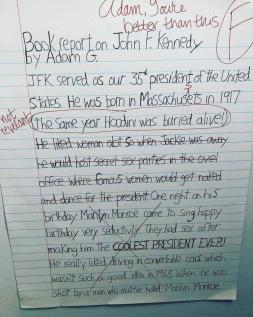 Adam, you're
better than this
F
Book report on John F. Kennedy
by Adam G.
JFK served as our 35th president of the United
States. He was born in Massachusets in 1917
not relevant
(the same year Hoodini was buried alive)
He liked woman alot so when Jackie was away
he would host secret sex parties in the ovel
office where famous women would get naked
and dance for the president One night on his
birthday Marilyn Monroe came to sing happy
birthday very seductivly They had sex after
making him the COOLEST PRESIDENT EVER!
He really liked driving in convertable cars which
wasn't such a good idea in 1963 when he was
shot by a man who mustive hated Marilyn Monroe